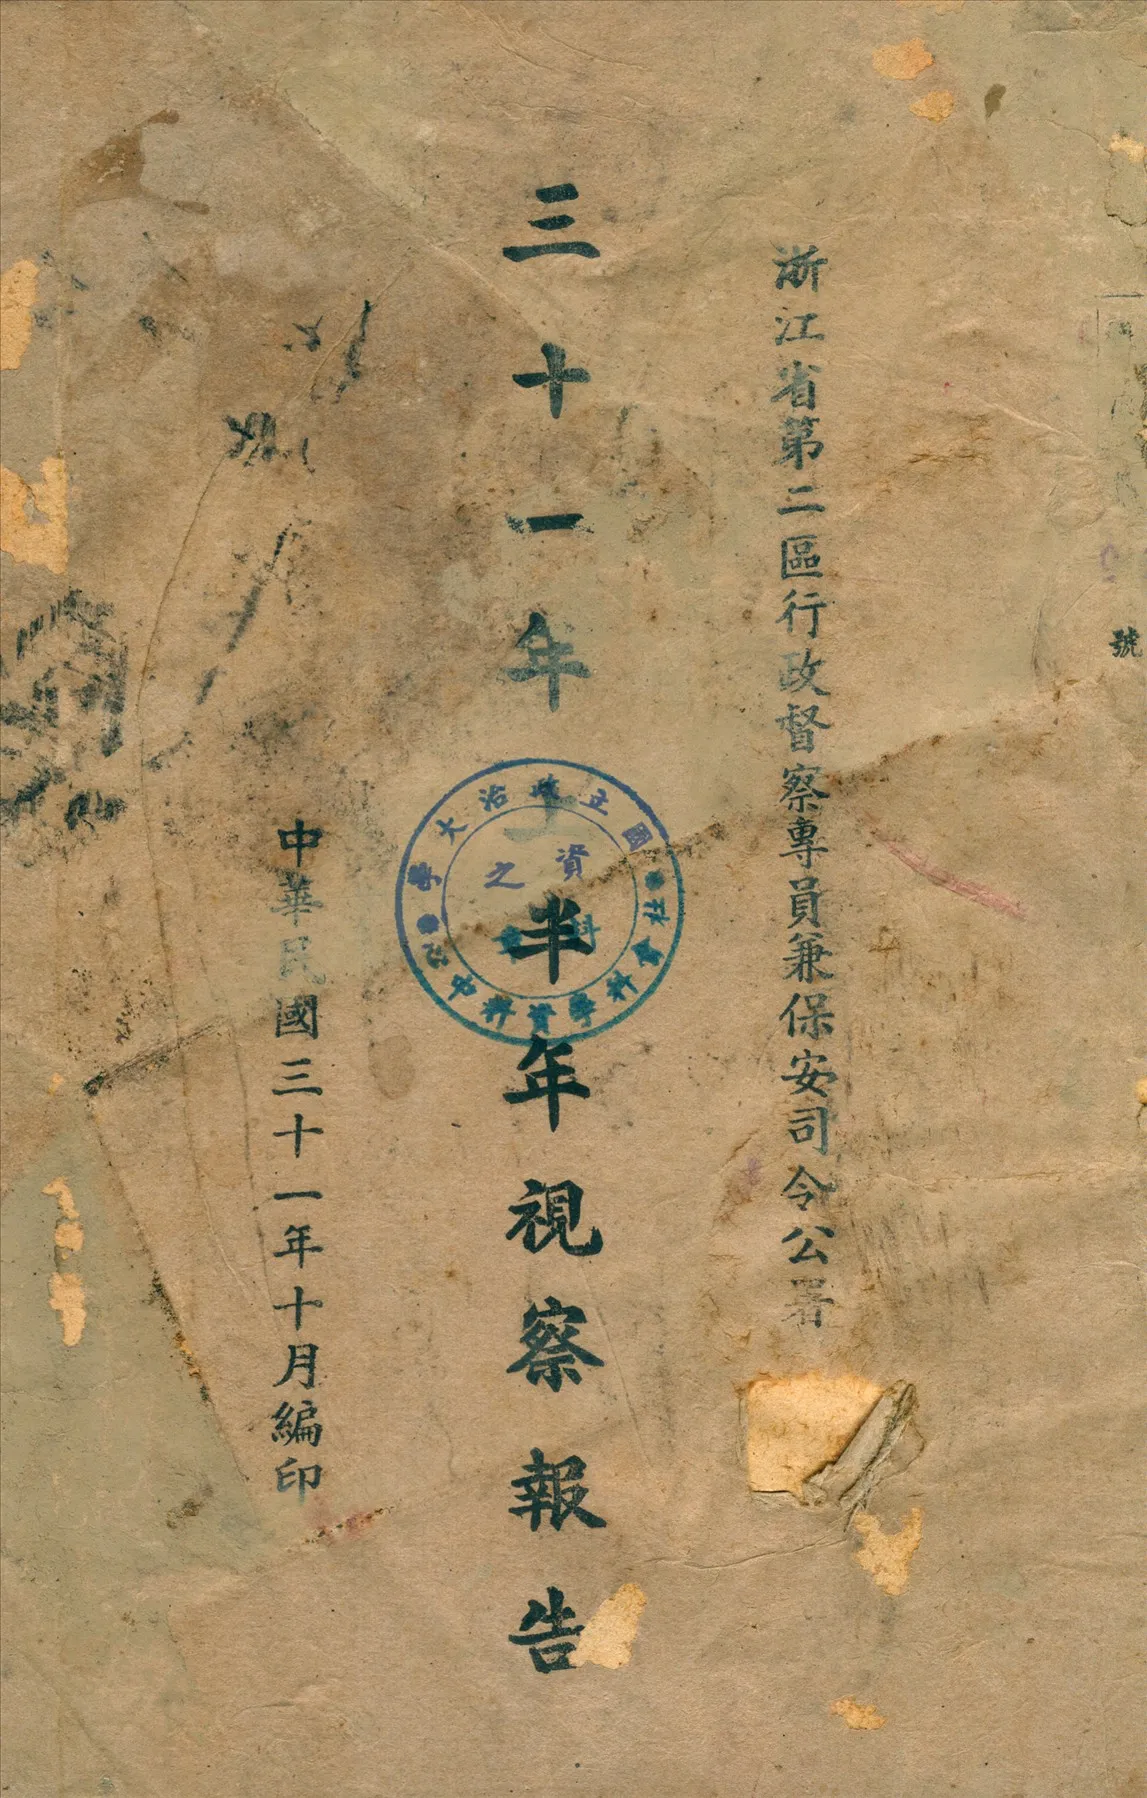 號
浙江省第二區行政督察專員兼保安司令公署
三十一年上半年視察報告
國立政治大學
社會科學資料中心
資料之章
中華民國三十一年十月編印